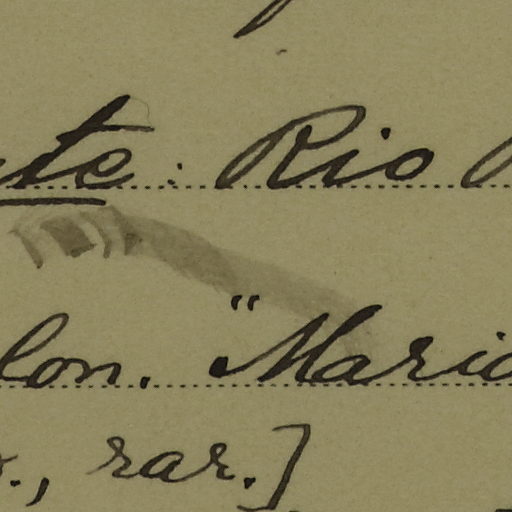 te: Rio
lon. "Mario
., rar.]